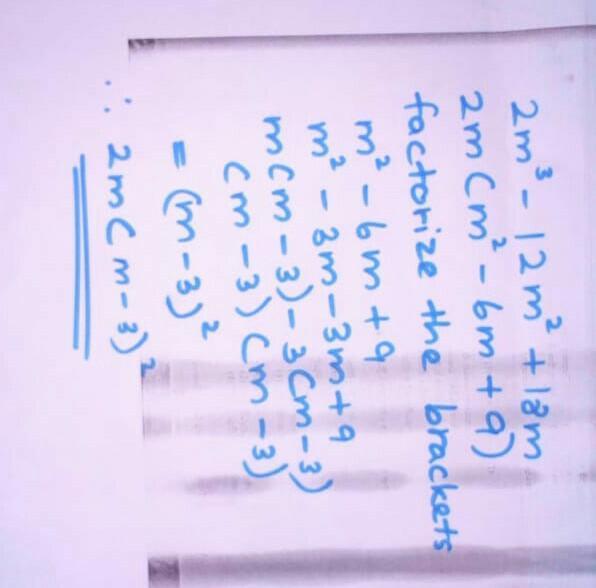 2m³ - 12m² + 18m
2m(m² - 6m + 9)
factorize the brackets
m² - 6m + 9
m² - 3m - 3m + 9
m(m - 3) - 3(m - 3)
(m - 3)(m - 3)
= (m - 3)²
∴ 2m(m - 3)²